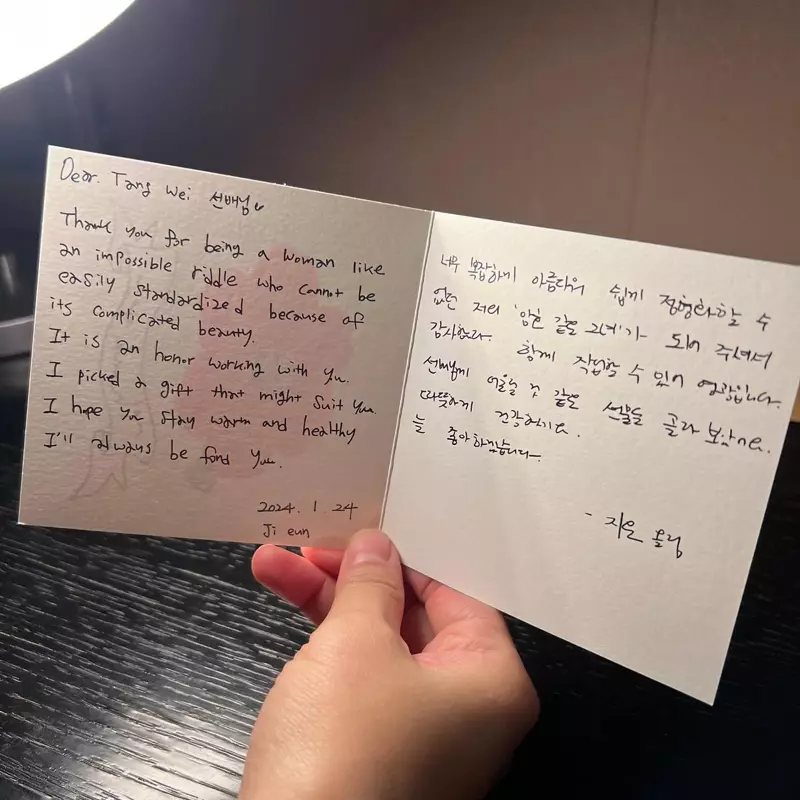 Dear. Tang Wei 선배님♥
Thank you for being a woman like
an impossible riddle who cannot be
easily standardized because of
its complicated beauty.
It is an honor working with you.
I picked a gift that might suit you.
I hope you stay warm and healthy
I'll always be fond you.
2024. 1. 24
Ji eun
너무 복잡하게 아름다워 쉽게 정형화할 수
없던 저의 '암호 같은 그녀'가 되어 주셔서
감사해요. 함께 작업할 수 있어 영광입니다.
선배님께 어울릴 것 같은 선물을 골라 보았어요.
따뜻하게 건강하기요.
늘 좋아하겠습니다.
- 지은 올림